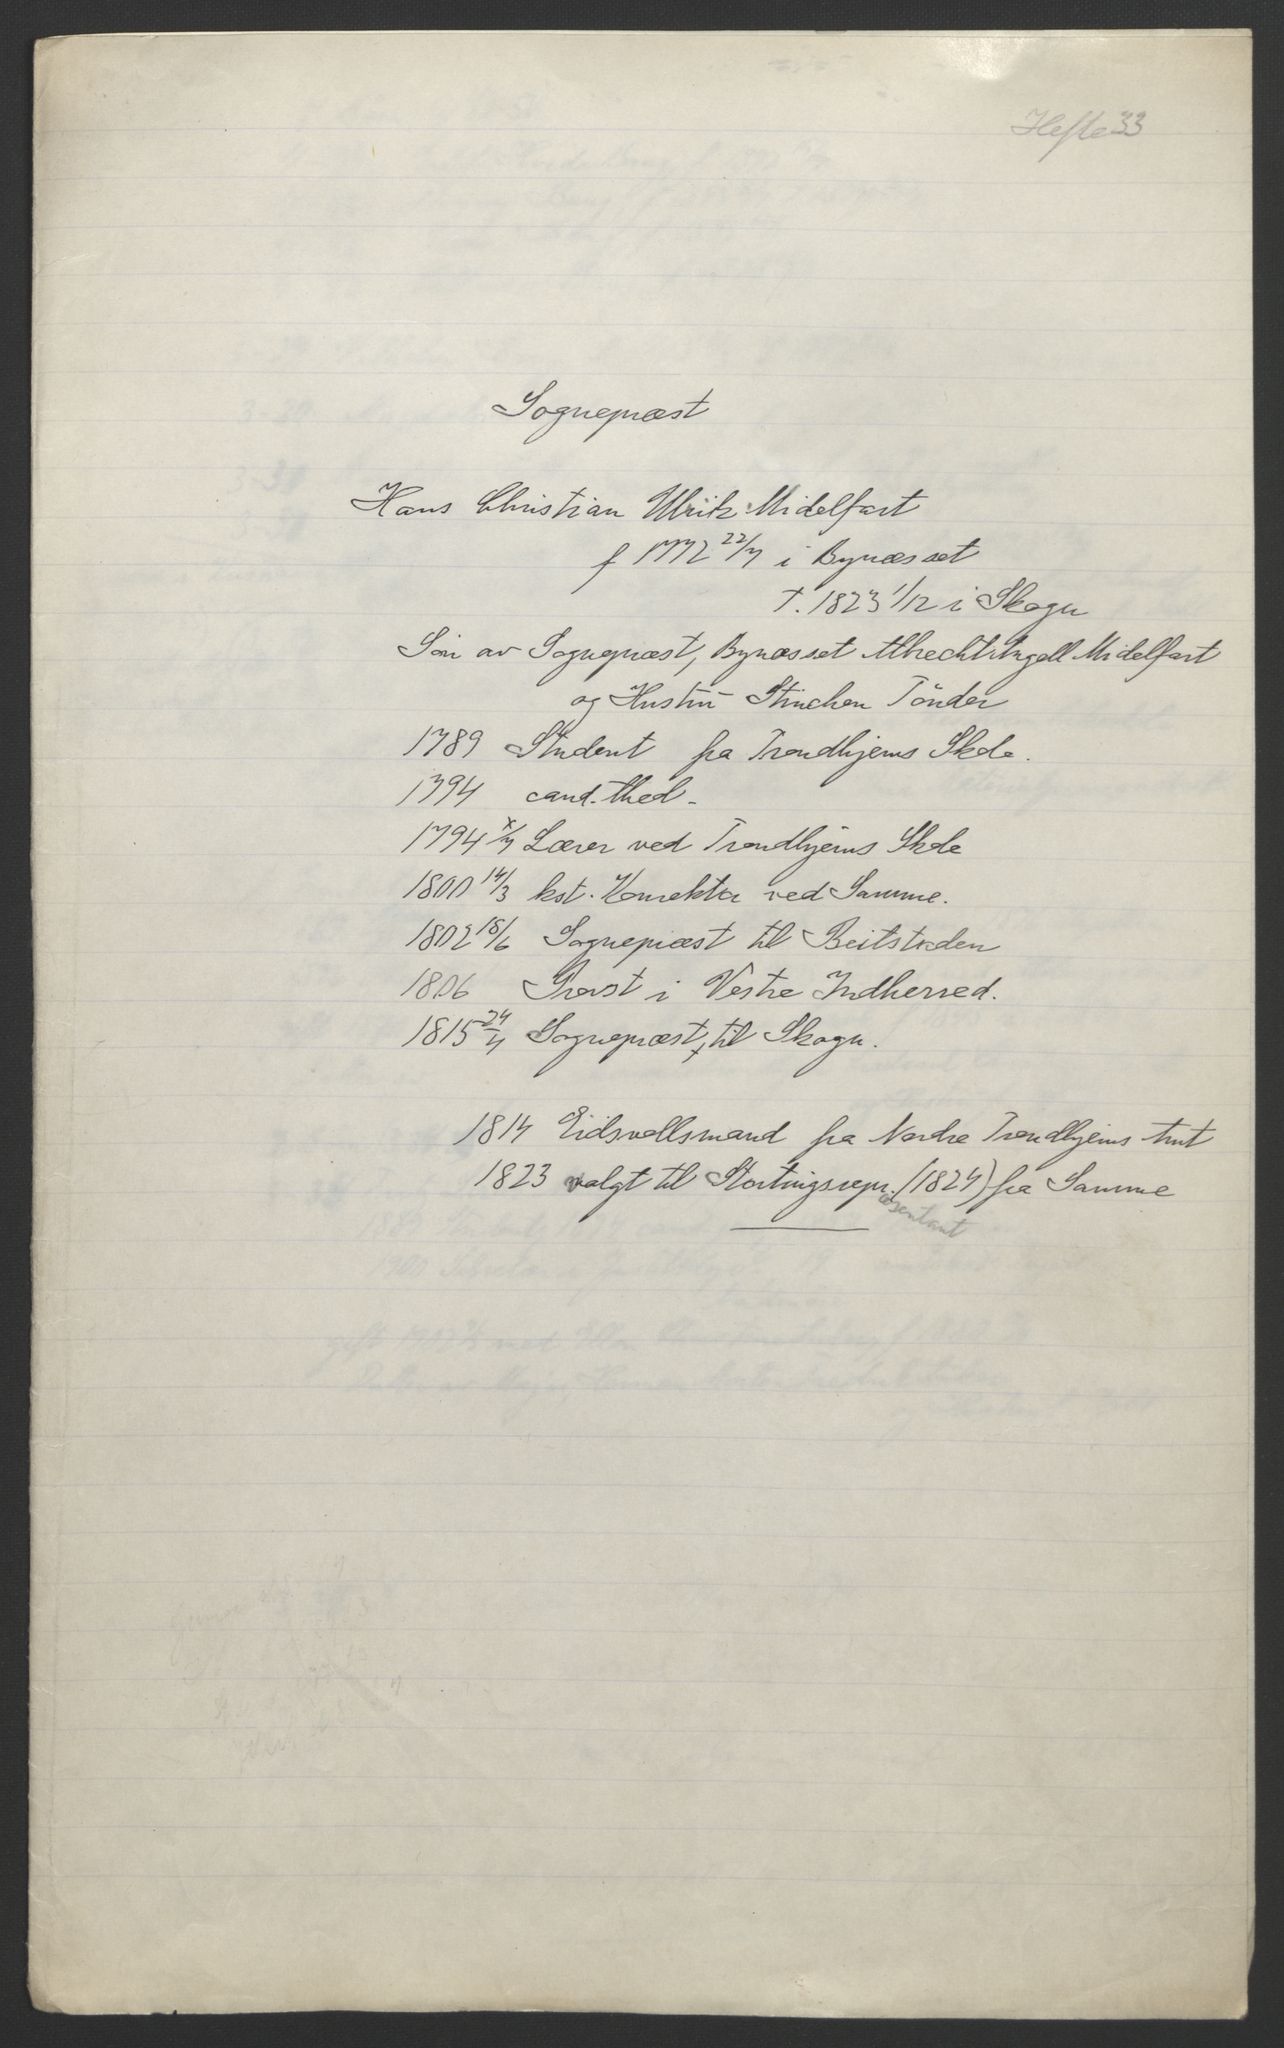 Hefte 33
Sognepræst
Hans Christian Ulrik Midelfart
f 1772 22/7 i Bynæsset
†. 1823 1/12 i Skogn
Sön av Sognepræst, Bynæsset Albrecht Angell Midelfart
og Hustru Stinchen Tönder
1789 Student fra Trondhjems Skole.
1794 cand. theol.
1794 x/7 Lærer ved Trondhjems Skole
1800 14/3 kst. Konrektor ved Samme.
1802 18/6 Sognepræst til Beitstaden
1806 Provst i Vestre Indherred.
1815 24/4 Sognepræst, til Skogn.
1814 Eidsvollsmand fra Nordre Trondhjems Amt
1823 valgt til Stortingsrepr. (1824) fra Samme
æsentant